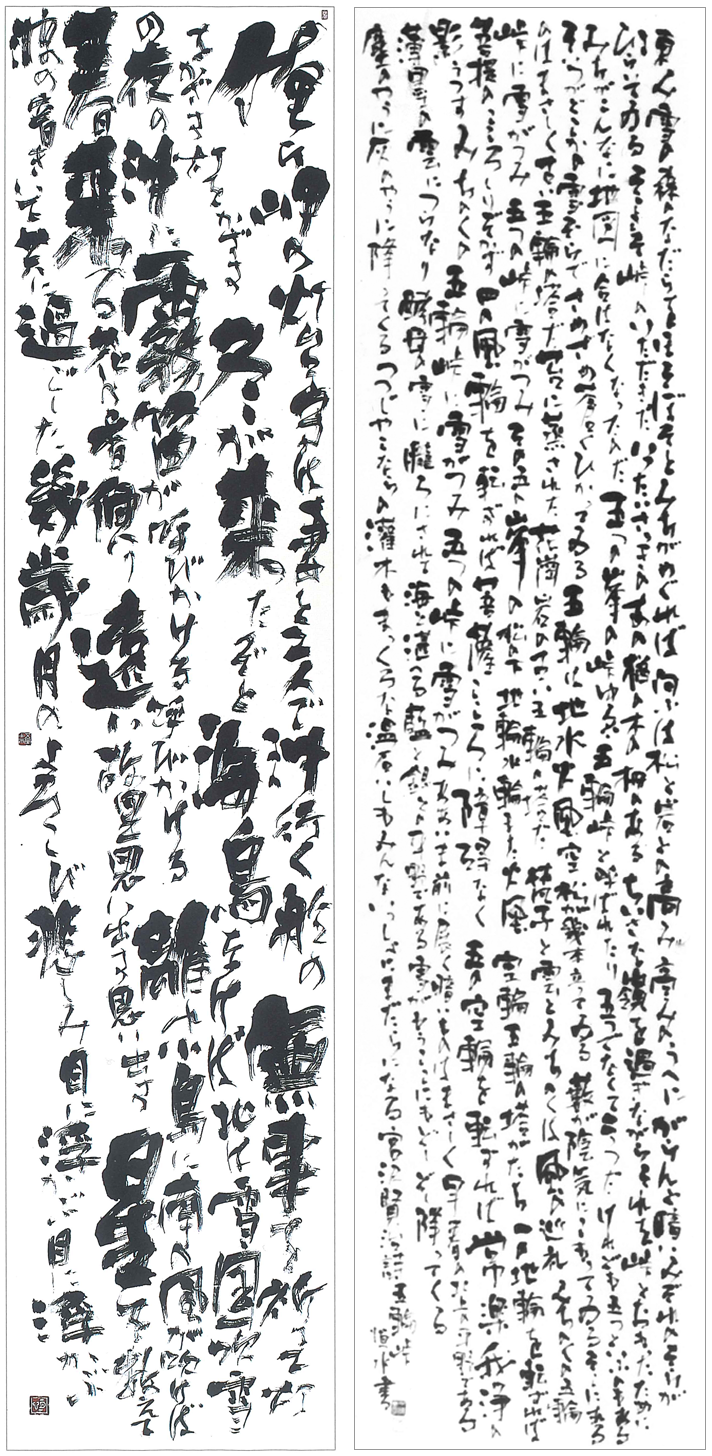 凍み雪の森のなだらをほそぼそとみちがめぐれば向ふは松と岩との高み高みのうへにがらんと暗いみぞれのそらが
ひらいてゐるそここそ峠のいただきだいつたいさつきのあの楢の木の柵のあるちいさな嶺を過ぎながらそれを峠とおもつたために
みちがこんなに地図に合はなくなつたのだ五つの峯の峠ゆゑ五輪峠と呼ばれたり五つでなくて二つだけれども五つといふのもある
どこかの雪ぞらでさめざめ蒼くひかつてゐる五輪は地水火風空松が幾本立つてゐる藪が陰気にこもつてゐるそこにある
のはまさしく古い五輪の塔だ苔に蒸された花崗岩の古い五輪の塔だ梵字と雲とみちのくは風の巡礼みちのくの五輪
峠に雪がつみ五つの峠に雪がつみその五の峯の松の下地輪水輪また火風空輪五輪の塔がたち一の地輪を転ずれば
菩提のこころしりぞかず四の風輪を転ずれば菩薩こころに障碍なく五の空輪を転ずれば常楽我浄の
影うつすみちのくの五輪峠に雪がつみ五つの峠に雪がつみああいま前に展く暗いものはまさしく早春の北上の平野である
薄墨の雲につらなり酵母の雪に朧ろにされて海と湛へる藍と銀との平野である雪がもうここにもどしどし降つてくる
塵のやうに灰のやうに降つてくるつつじやこならの灌木もまつくろな温石いしもみんないつしよにまだらになる 宮沢賢治詩 五輪峠
書
俺ら岬の灯台守は妻と二人で沖行く船の無事を祈って灯
をかざす灯をかざす冬が来たぞと海鳥なけば北は雪国吹雪
の夜の沖に霧笛が呼びかける呼びかける離れ小島に南の風が吹けば
春来る花の香便り遠い故里思い出す思い出す星を数えて
波の音きいて共に過ごした幾歳月のよろこび悲しみ目に浮かぶ目に浮かぶ